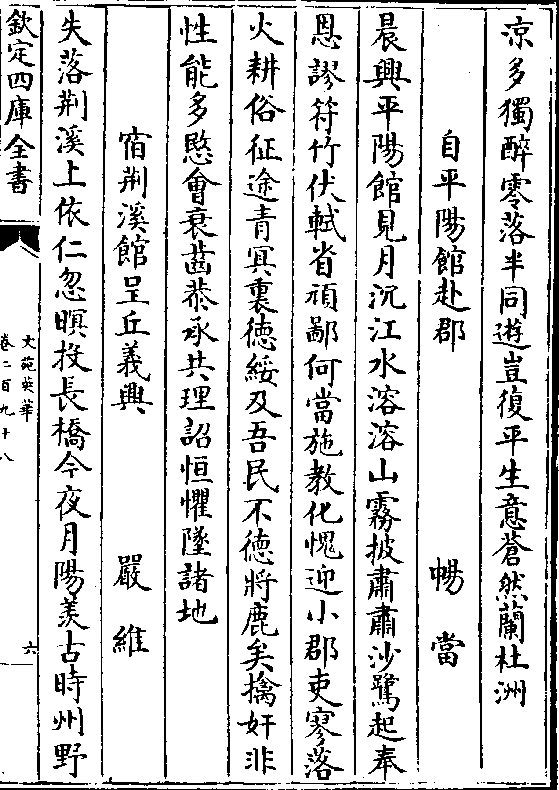 涼多獨醉零落半同遊豈復平生意蒼然蘭杜洲
自平陽館赴郡 暢當
晨興平陽館見月沉江水溶溶山霧披肅肅沙鷺起奉
恩謬符竹伏軾省頑鄙何當施教化愧迎小郡吏寥落
火耕俗征途青冥裏德綏及吾民不德將鹿矣擒奸非
性能多愍會衰齒恭承共理詔恒懼墜諸地
宿荆溪館呈丘義興 嚴維
失落荆溪上依仁忽暝投長橋今夜月陽羨古時州野
欽定四庫全書
文苑英華
卷二百九十八
六